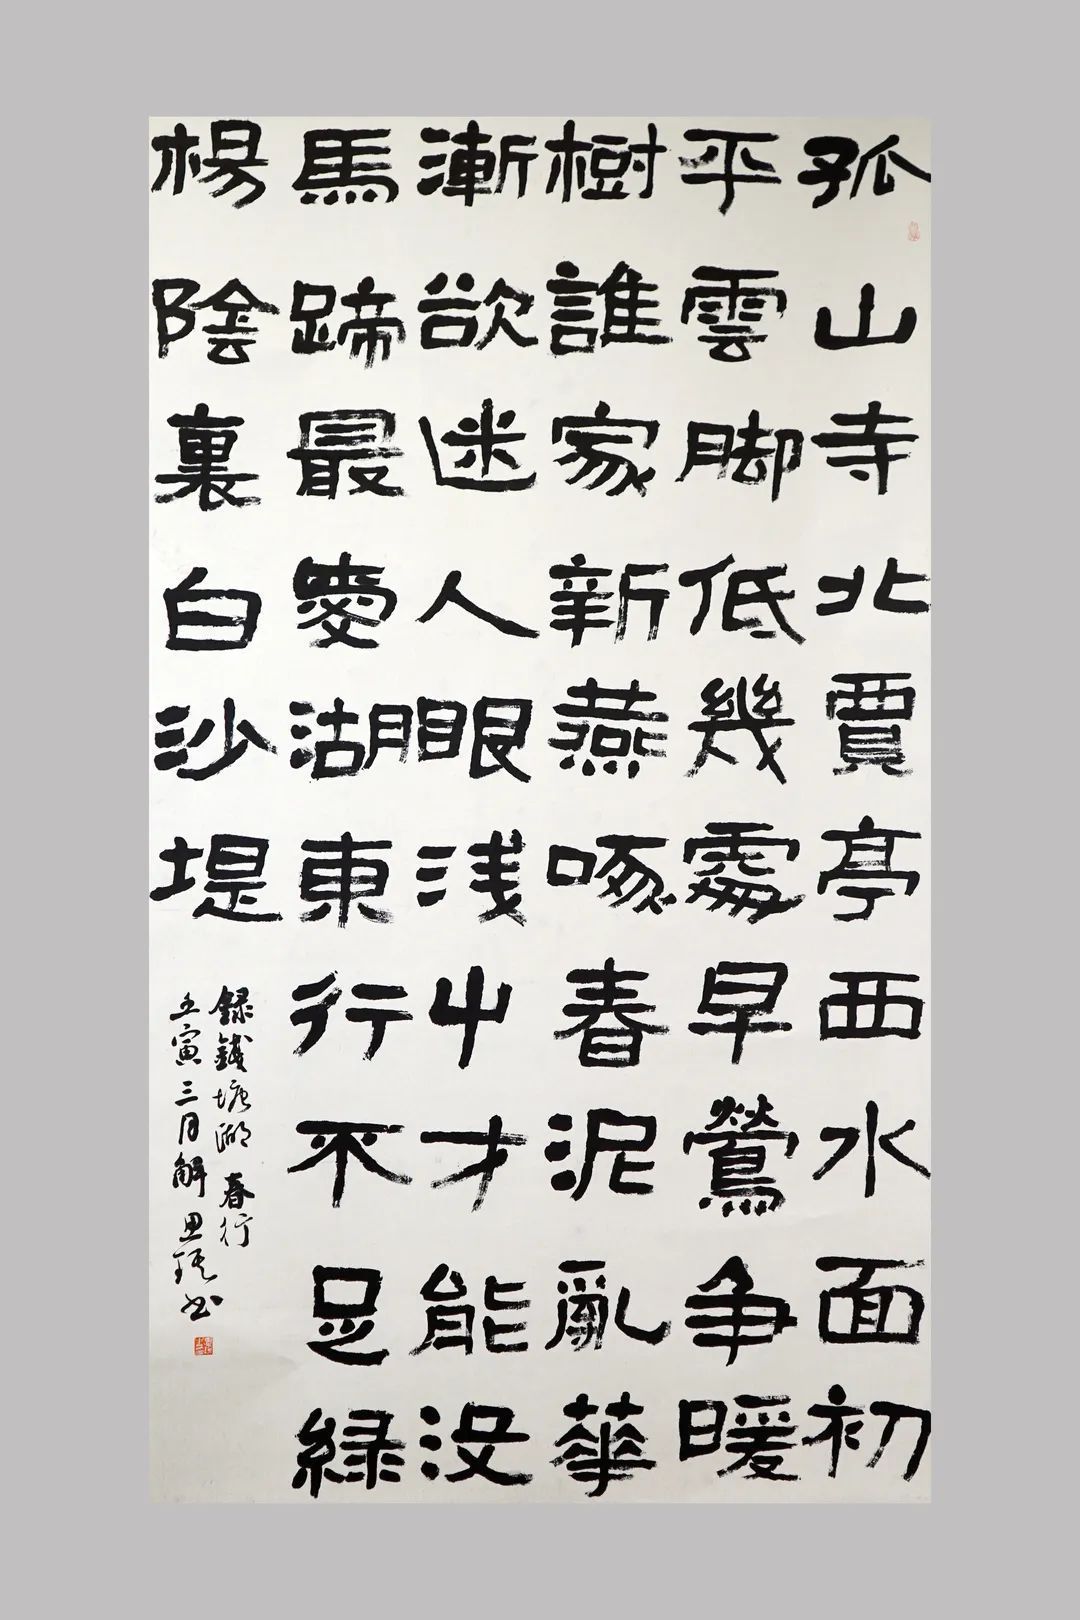 孤山寺北賈亭西水面初
平雲脚低幾處早鶯争暖
樹誰家新燕啄春泥亂華
漸欲迷人眼浅屮才能没
馬蹄最愛湖東行不足緑
楊陰裏白沙堤
録錢塘湖春行
壬寅三月解思书